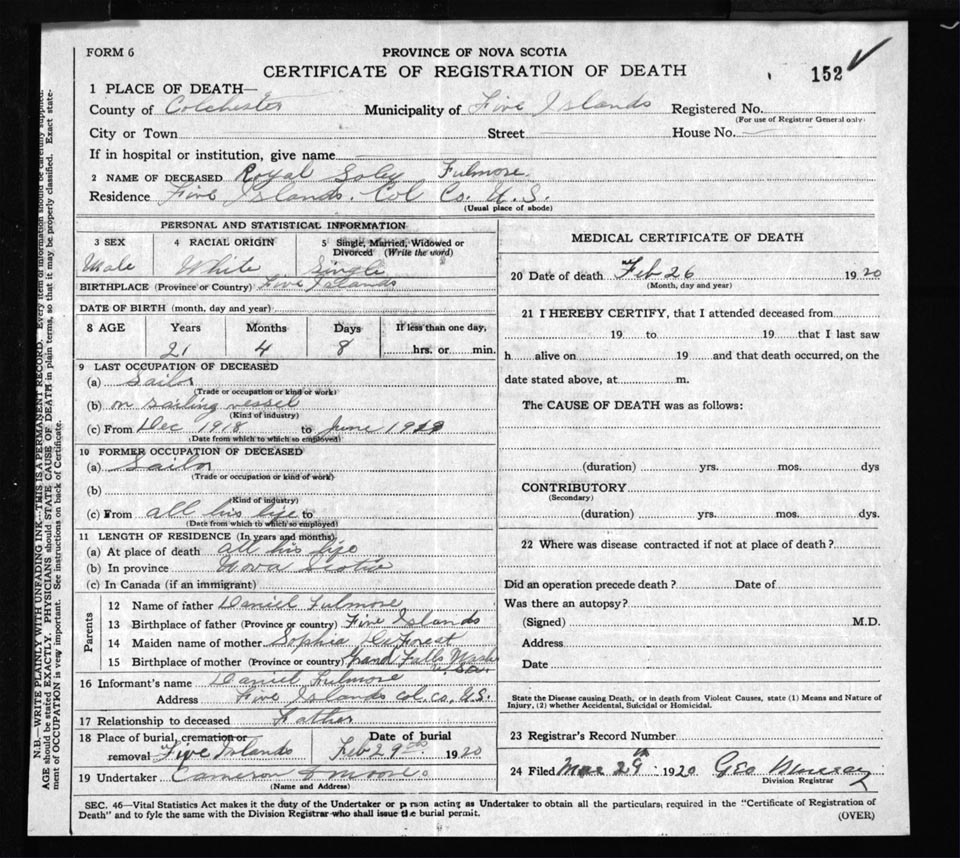 FORM 6
PROVINCE OF NOVA SCOTIA
CERTIFICATE OF REGISTRATION OF DEATH
152
1 PLACE OF DEATH—
County of Colchester Municipality of Five Islands Registered No.
(For use of Registrar General only)
City or Town Street House No.
If in hospital or institution, give name
2 NAME OF DECEASED Royal Soley Fulmore
Residence Five Islands. Col Co. N.S.
(Usual place of abode)
PERSONAL AND STATISTICAL INFORMATION
3 SEX 4 RACIAL ORIGIN 5 Single, Married, Widowed or Divorced (Write the word)
Male White Single
BIRTHPLACE (Province or Country) Five Islands
DATE OF BIRTH (month, day and year)
8 AGE Years Months Days If less than one day,
21 4 8 hrs. or min.
9 LAST OCCUPATION OF DECEASED
(a) Sailor
(Trade or occupation or kind or work)
(b) on sailing vessel
(Kind of industry)
(c) From Dec 1918 to June 1919
(Date from which to which so employed)
10 FORMER OCCUPATION OF DECEASED
(a) Sailor
(Trade or occupation or kind of work)
(b)
(Kind of industry)
(c) From all his life to
(Date from which to which so employed)
11 LENGTH OF RESIDENCE (In years and months)
(a) At place of death all his life
(b) In province Nova Scotia
(c) In Canada (if an immigrant)
Parents
12 Name of father Daniel Fulmore
13 Birthplace of father (Province or country) Five Islands
14 Maiden name of mother Sophia DeForest
15 Birthplace of mother (Province or country) Grand Falls Mash U.S.A.
16 Informant's name Daniel Fulmore
Address Five Islands col. co, N.S.
17 Relationship to deceased Father
18 Place of burial, cremation or Date of burial
removal Five Islands Feb 29th 1920
19 Undertaker Cameron & Moore
(Name and Address)
MEDICAL CERTIFICATE OF DEATH
20 Date of death Feb 26 1920
(Month, day and year)
21 I HEREBY CERTIFY, that I attended deceased from
19 to 19 that I last saw
h alive on 19 and that death occurred, on the
date stated above, at m.
The CAUSE OF DEATH was as follows:
(duration) yrs. mos. dys
CONTRIBUTORY
(Secondary)
(duration) yrs. mos. dys.
22 Where was disease contracted if not at place of death?
Did an operation precede death? Date of
Was there an autopsy?
(Signed) M.D.
Address
Date
State the Disease causing Death, or in death from Violent Causes, state (1) Means and Nature of
Injury, (2) whether Accidental, Suicidal or Homicidal.
23 Registrar's Record Number
24 Filed Mar 29th 1920 Geo Murray
Division Registrar
SEC. 46—Vital Statistics Act makes it the duty of the Undertaker or person acting as Undertaker to obtain all the particulars required in the "Certificate of Registration of
Death" and to fyle the same with the Division Registrar who shall issue the burial permit. (OVER)
N.B.—WRITE PLAINLY WITH UNFADING INK—THIS IS A PERMANENT RECORD. Every item of information should be carefully supplied.
AGE should be stated EXACTLY. PHYSICIANS should STATE CAUSE OF DEATH in plain terms, so that it may be properly classified. Exact state-
ment of OCCUPATION is very important. See instructions on back of Certificate.